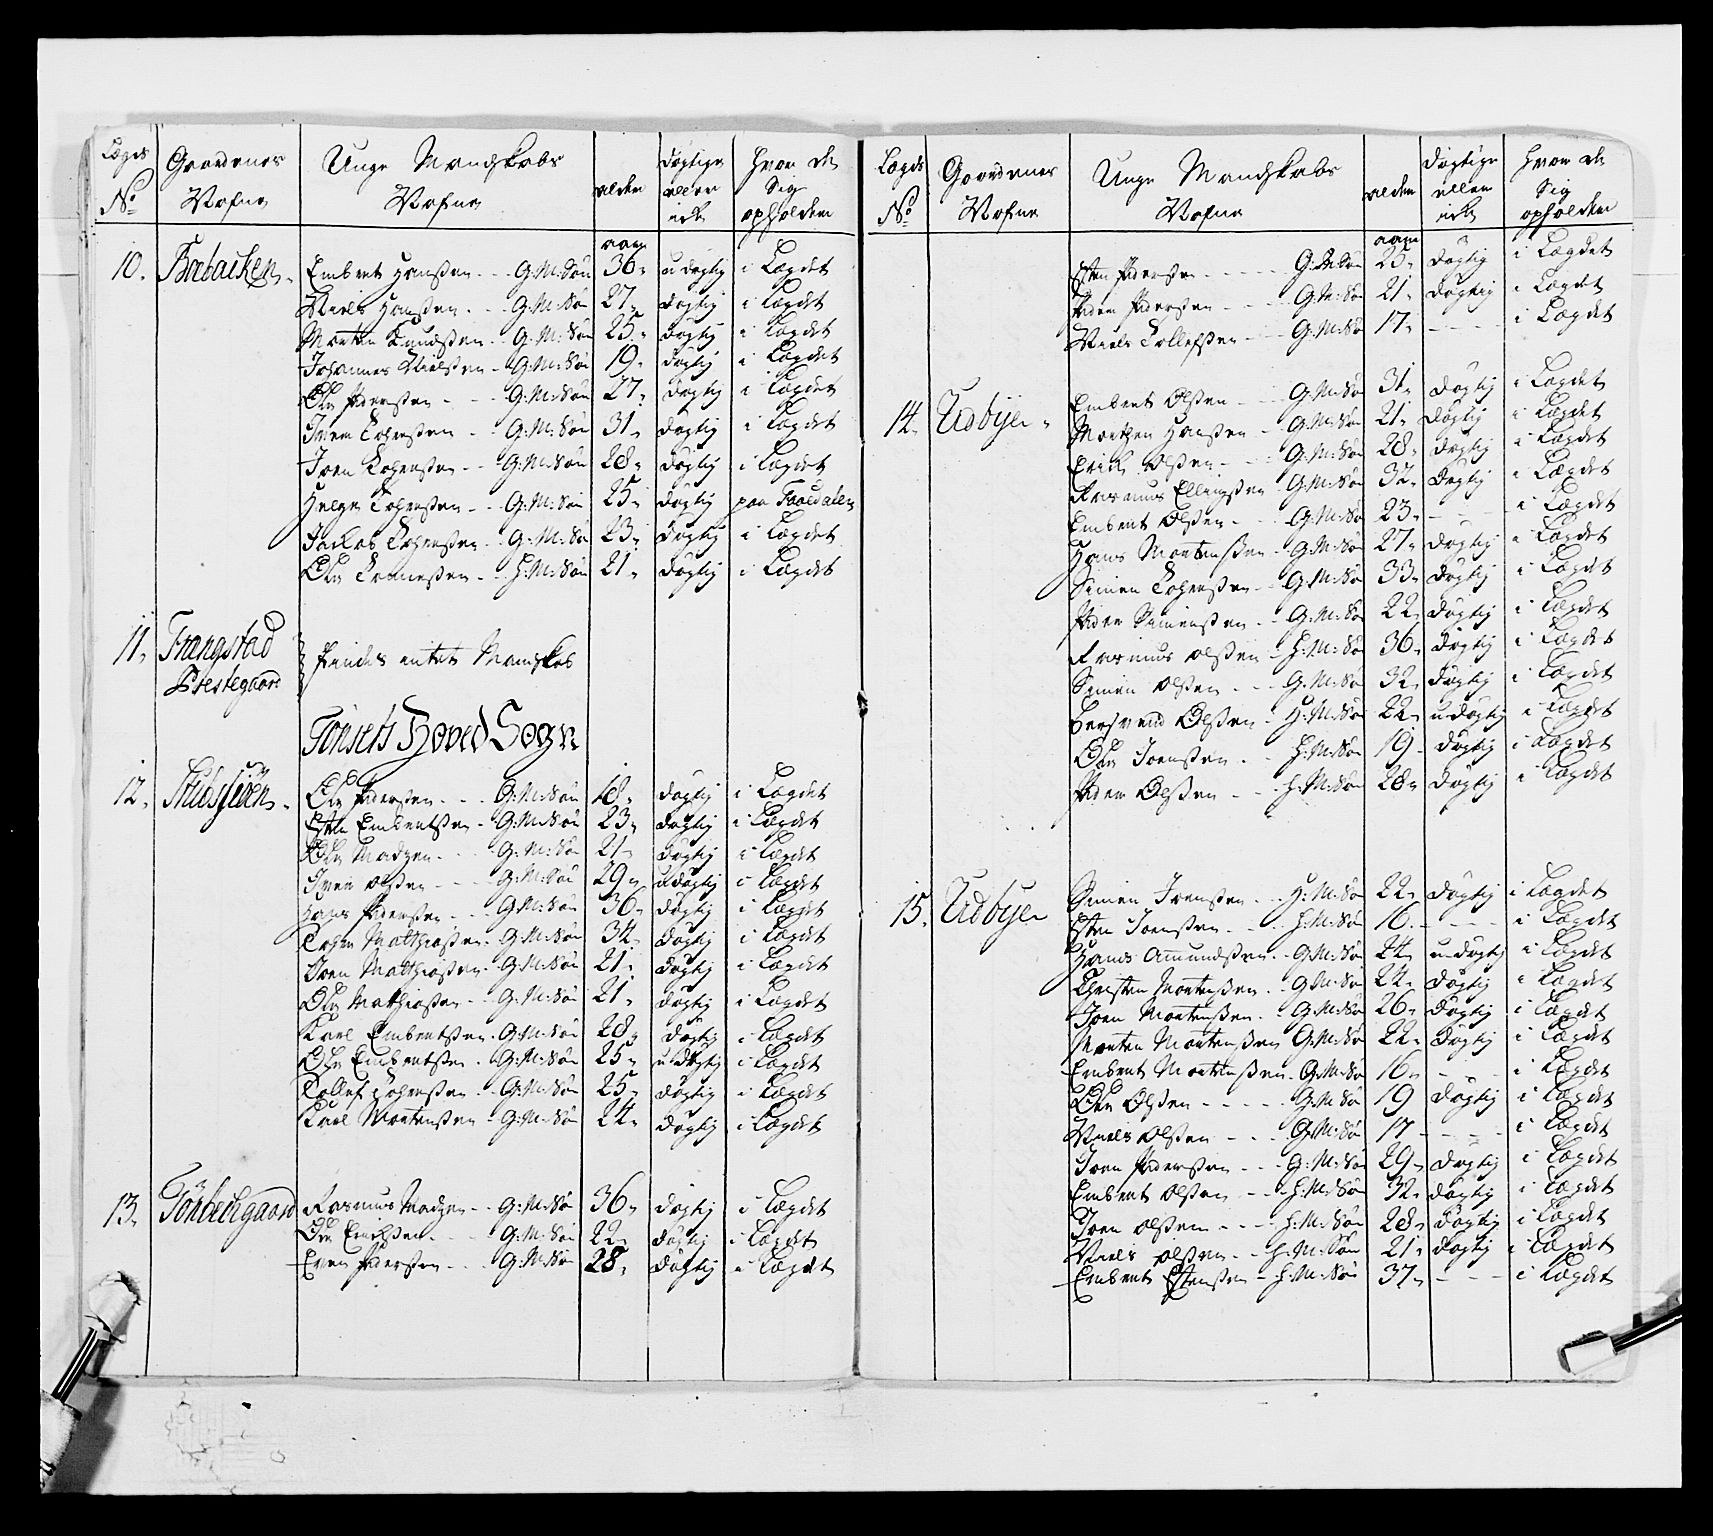 Lægds No Gaardenes Nafne Unge Mandskabs Nafne alder dygtige eller ick hvor de Sig opholder
aar
10. Brebacken. Embret Hansen - - G: M: Søn 36. udygtig i Lægdet
Niels Hansen - - G: M: Søn 27. dygtig i Lægdet
Morten Knudsen - G: M: Søn 25. dygtig i Lægdet
Johannes Nielsen - G: M: Søn 19. dygtig i Lægdet
Ole Pedersen - - - G: M: Søn 27. dygtig i Lægdet
Iver Tostensen - - G: M: Søn 31. dygtig i Lægdet
Joen Tostensen - - G: M: Søn 28. dygtig i Lægdet
Helge Tostensen - - G: M: Søn 25. dygtig paa
Jackob Tostensen - G: M: Søn 23. dygtig i Lægdet
Ole - - H: M: Søn 21. dygtig i Lægdet
11. Frengstad Prestegaard findes intet Mandskab
Tønsets Hoved Sogn
12. Ole Pedersen - - - G: M: Søn 18. dygtig i Lægdet
Esten Embretsen - G: M: Søn 23. dygtig i Lægdet
Ole Madzen - - - G: M: Søn 21. dygtig i Lægdet
Iver Olsen - - - G: M: Søn 29. udygtig i Lægdet
Hans Pedersen - - - G: M: Søn 36. dygtig i Lægdet
Matthiasen - G: M: Søn 34. dygtig i Lægdet
Joen Matthiasen - G: M: Søn 21. dygtig i Lægdet
Ole Mathiasen - - G: M: Søn 21. dygtig i Lægdet
Karl Embretsen - G: M: Søn 28. dygtig i Lægdet
Ole Embretsen - G: M: Søn 25. udygtig i Lægdet
Tollef - G: M: Søn 25. dygtig i Lægdet
Karl Mortensen - G: M: Søn 24. dygtig i Lægdet
13. Rasmus Madzen - - G: M: Søn 36. dygtig i Lægdet
Ole Erichsen - - - G: M: Søn 22. dygtig i Lægdet
Even Pedersen - - - G: M: Søn 28. dygtig i Lægdet
Lægds No Gaardenes Nafne Unge Mandskabs Nafne alder dygtige eller ick hvor de Sig opholder
aar
Esten Pedersen - - - - G: M: Søn 25. dygtig i Lægdet
Peder Pedersen - - - G: M: Søn 21. dygtig i Lægdet
Niels Tollefsen - - G: M: Sø 17. - - - - i Lægdet
14. Udbye. Embret Olsen - - - G: M: Sø 31. dygtig i Lægdet
Morten Hansen - G: M: Sø 21. dygtig i Lægdet
Erich Olsen - - - G: M: Sø 28. dygtig i Lægdet
Rasmus Ellingsen G: M: Sø 32. dygtig i Lægdet
Embret Olsen - - - G: M: Sø 23. - - - i Lægdet
Hans Mortensen - G: M: Sø 27. dygtig i Lægdet
Simen Tostensen - - G: M: Sø 33. dygtig i Lægdet
Peder Simensen - - G: M: Sø 22. dygtig i Lægdet
Rasmus Olsen - H: M: Sø 36. dygtig i Lægdet
Simen Olsen - - - G: M: Sø 32. dygtig i Lægdet
Bersvend Olsen - H: M: Sø 22. udygtig i Lægdet
Ole Joensen - - H: M: Sø 19. dygtig i Lægdet
Peder Olsen - - - H: M: Sø 28. dygtig i Lægdet
15. Udbye Simen Joensen - - H: M: Sø 22. dygtig i Lægdet
Esten Joensen - - - H: M: Sø 16. - - - - i Lægdet
Hans Amundsen - G: M: Sø 24. udygtig i Lægdet
Christen Mortensen - G: M: Sø 22. dygtig i Lægdet
Joen Mortensen - G: M: Sø 26. dygtig i Lægdet
Morten Mortensen G: M: Sø 22. dygtig i Lægdet
Embret Mortensen - G: M: Sø 16. - - - i Lægdet
Ole Olsen - - - - - G: M: Sø 19 dygtig i Lægdet
Niels Olsen - - - - G: M: Sø 17 - - - - i Lægdet
Joen Pedersen - - - G: M: Sø 29. dygtig i Lægdet
Embret Olsen - - - H: M: Sø 32. dygtig i Lægdet
Joen Olsen - - - - H: M: Søn 28. dygtig i Lægdet
Niels Olsen - - H: M: Søn 21. dygtig i Lægdet
Embret Estensen - H: M: Søn 37. - - - i Lægdet